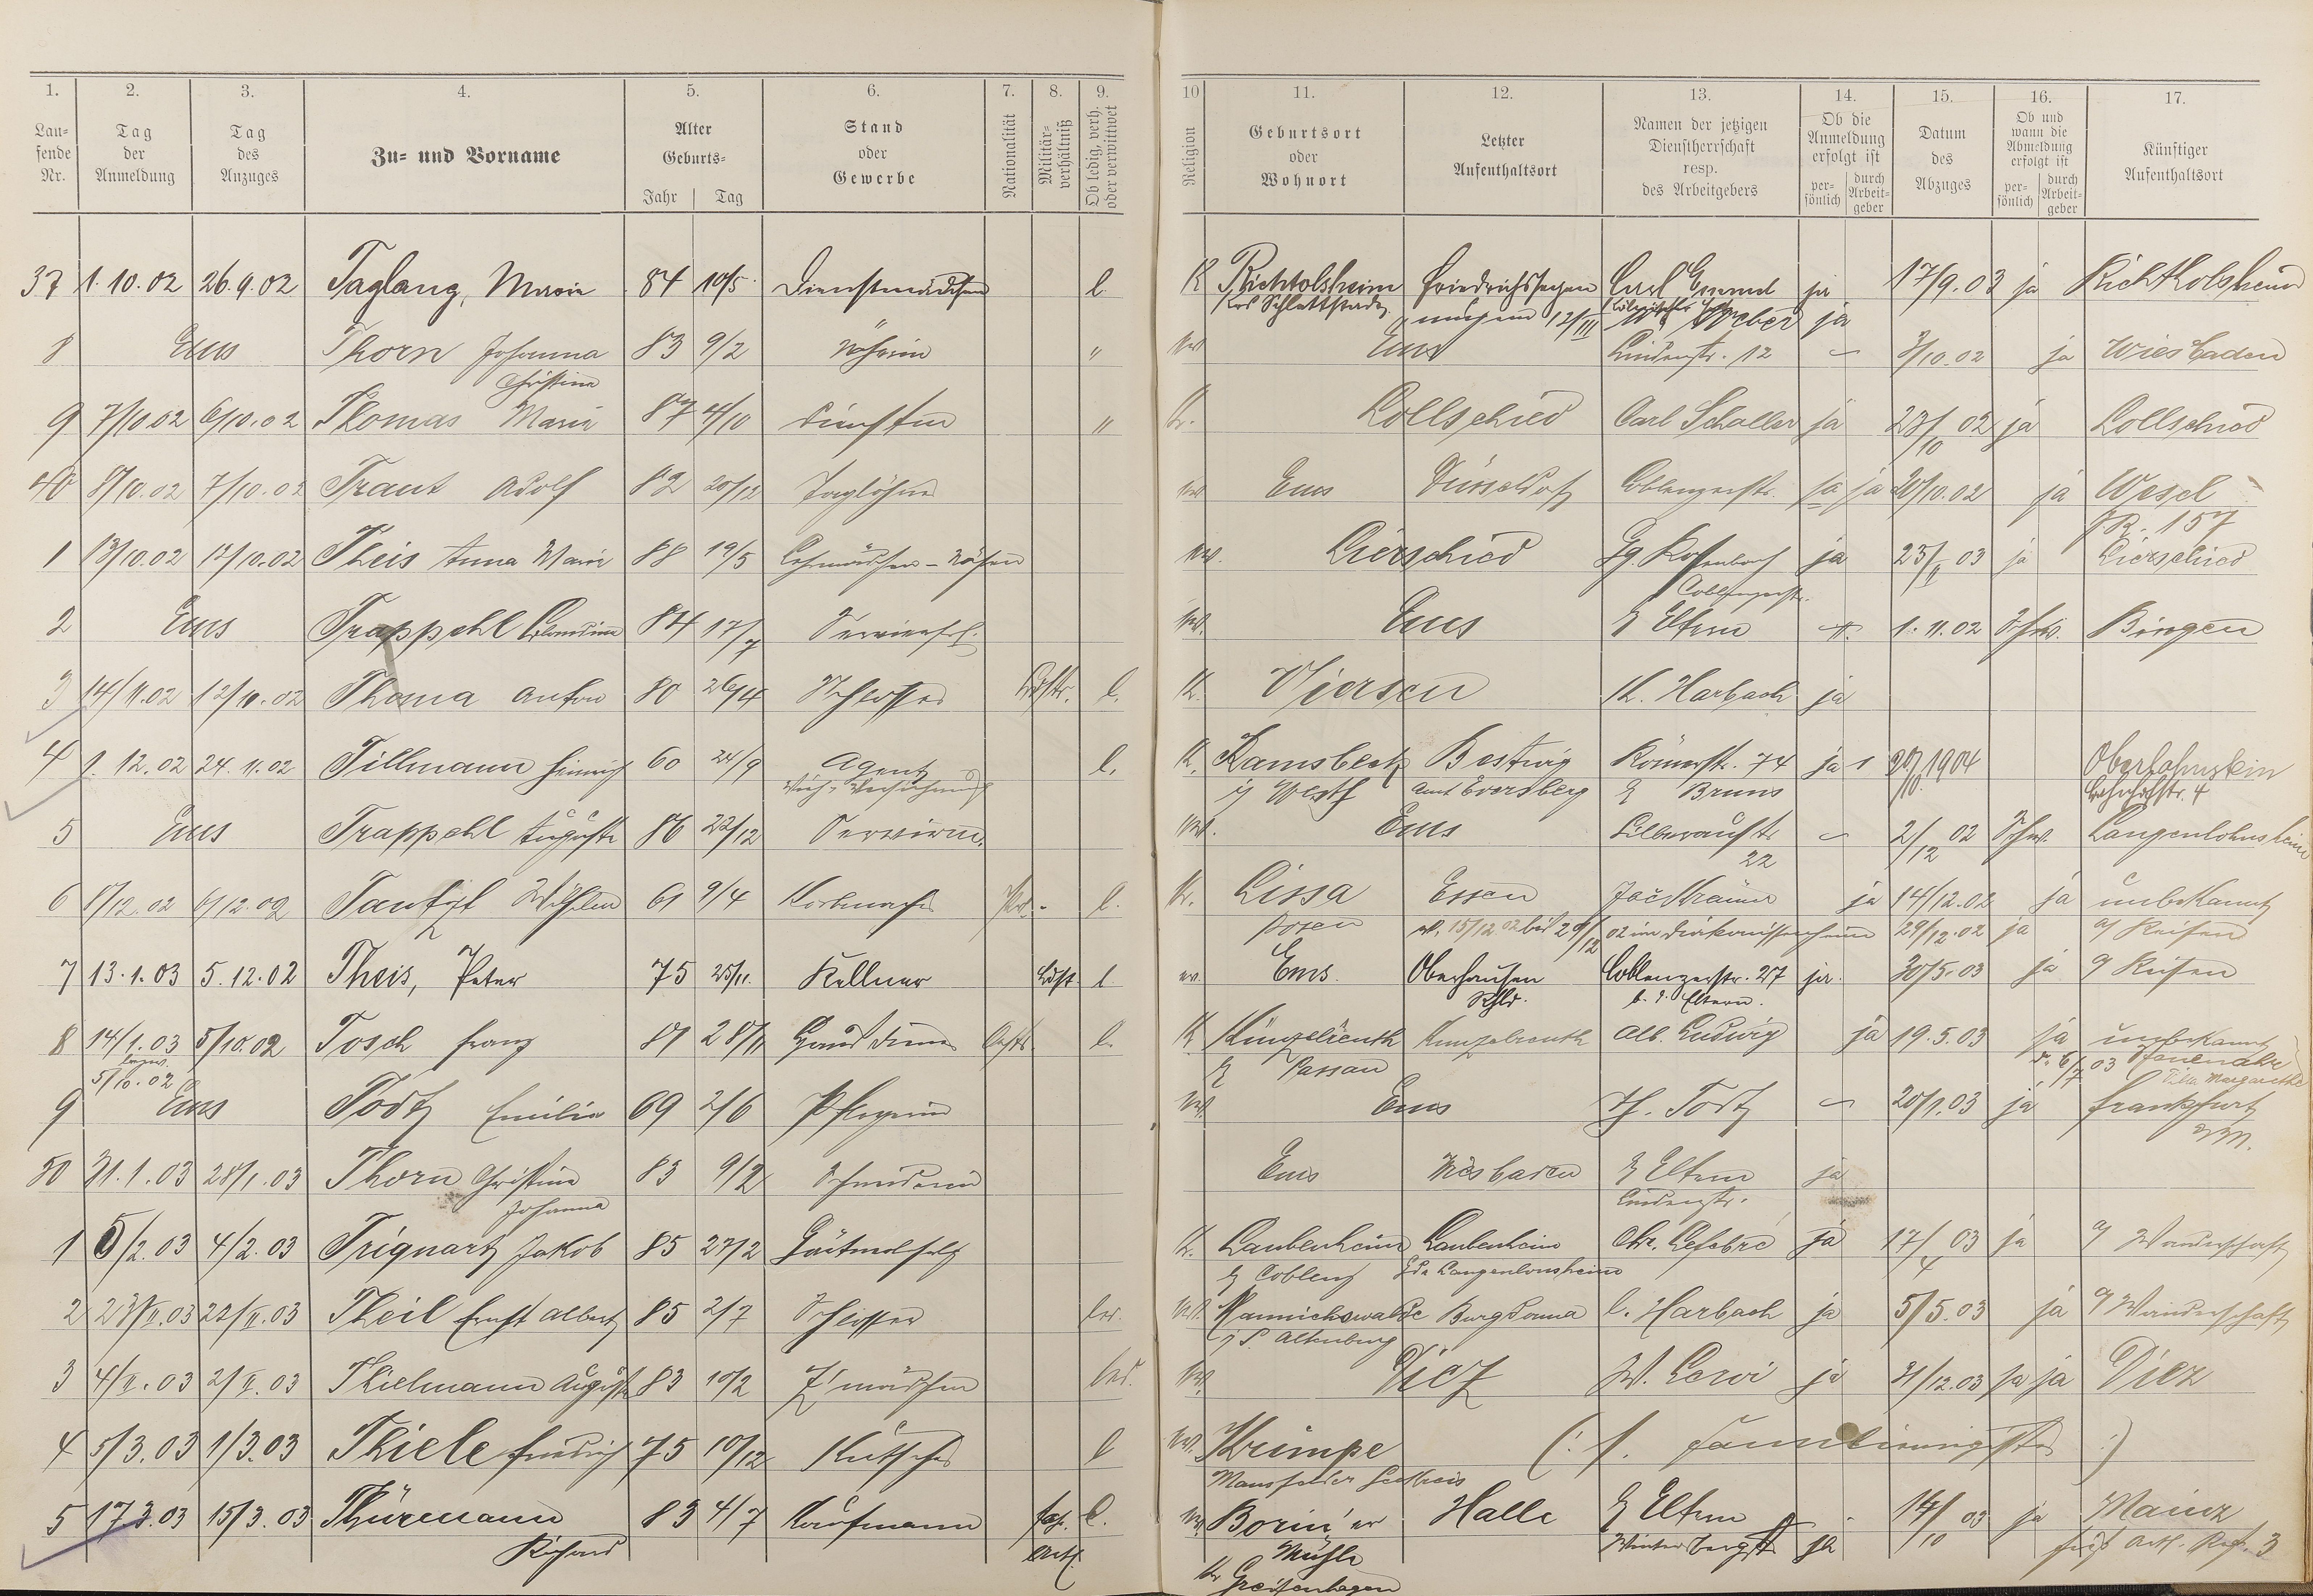 1. 2. 3. 4. 5. 6. 7. 8. 9. 10 11. 12. 13. 14. 15. 16. 17.
Lau-
fende
Nr.
Tag
der
Anmeldung
Tag
des
Anzuges
Zu- und Vorname
Alter
Geburts-
Jahr Tag
Stand
oder
Gewerbe
Nationalität
Militär-
verhältniß
Ob ledig, verh.
oder verwittwet
Religion
Geburtsort
oder
Wohnort
Letzter
Aufenthaltsort
Namen der jetzigen
Dienstherrschaft
resp.
des Arbeitgebers
Ob die
Anmeldung
erfolgt ist
per-
sönlich
durch
Arbeit-
geber
Datum
des
Abzuges
Ob und
wann die
Abmeldung
erfolgt ist
per-
sönlich
durch
Arbeit-
geber
Künftiger
Aufenthaltsort
37 1.10.02 26.9.02 Taglang, Marie 84 10/5 Dienstmädchen l. K Richtolsheim Friedrichssegen Carl ja 17/9.03 ja Richtholsheim
Krs Schlettstadt 12/III Weber ja
8 Ems Thorn Johanna 83 9/2 Näherin " Ems Lindenstr. 12 3/10.02 ja Wiesbaden
Christina
9 7/10.02 6/10.02 Thomas Maria 87 4/10 " K. Lollschied Carl Schaller ja 23/10 02 ja Lollschied
40 8/10.02 7/10.02 Traut Adolf 82 20/12 Taglöhner Ems Düsseldorf Coblenzerstr. ja ja 20/10.02 ja Wesel
J.R. 157
1 13/10.02 12/10.02 Theis Anna Marie 88 19/5 Lehrmädchen - Nähen Lierschied ja 23/II 03 ja Lierschied
Coblenzerstr.
2 Ems Trappehl 84 17/7 Servierfrl. Ems Eltern 1.11.02 Bingen
3 14/11.02 12/11.02 Thoma Anton 80 26/4 Schlosser l. K. Viersen H. Harbach ja
4 1.12.02 24.11.02 Tillmann Heinrich 60 24/9 Agent l. K. Ramsbeck Bestwig Römerstr. 74 ja 20/10 1904 Oberlahnstein
Vieh-Versicherung Westf Amt Eversberg Bruns Bahnhofstr. 4
5 Ems Trappehl Auguste 86 22/12 Servirm. Ems Silberaustr 2/12 02 Langenlohnsheim
22
6 8/12.02 6/12.02 Wilhelm 61 9/4 Korbmacher Pr. l. K. Lissa Essen ja 14/12.02 ja unbekannt
Posen 15/12 02 bis 29/12 02 im Diakonissenheim 29/12.02 ja a/ Reisen
7 13.1.03 5.12.02 Theis, Peter 75 25/11. Kellner Ldst. l. ev. Ems. Oberhausen Coblenzerstr. 27 ja. 30/5.03 ja Reisen
Rhld. b. d. Eltern.
8 14/1.03 5/10.02 Tosch Franz 81 28/11 Hausdiener l. K Künzelreuth Kunzelreuth Alb. Ludwig ja 19.5.03 ja unbekannt
5/10.02 Passau 6/7 03 Villa Margarethe
9 Ems Todt Emilie 69 2/6 Pflegerin Ems H. Todt 20/1.03 ja Frankfurt
a/M.
50 31.1.03 28/1.03 Thorn Christina 83 9/2 Schneiderin Ems Wiesbaden Eltern ja
Johanna Lindenstr.
1 5/2.03 4/2.03 Triquart Jakob 85 27/2 K. Laubenheim Laubenheim Chr. Lefebre ja 17/4 03 ja a/ Wanderschaft
Coblenz Langenlonsheim
2 23/II.03 22/II.03 Theil Ernst Albert 85 2/7 Schlosser led. Mannichswalde Burgdonna C. Harbach ja 5/5.03 ja a/ Wanderschaft
S. Altenburg
3 4/II.03 2/II.03 Thielmann Auguste 83 10/2 Z'mädchen led. Diez W. ja 31/12.03 ja ja Diez
4 5/3.03 1/3.03 Thiele Friedrich 75 10/12 Kutscher l Krimpe (: s. :)
Mansfelder Seekreis
5 17.3.03 15/3.03 Thürmann 83 4/7 Kaufmann l. Borin'er Halle Eltern 14/10 03 ja Mainz
Richard Mühle Winterbergstr ja Art. Regt. 3
Kr Greifenhagen